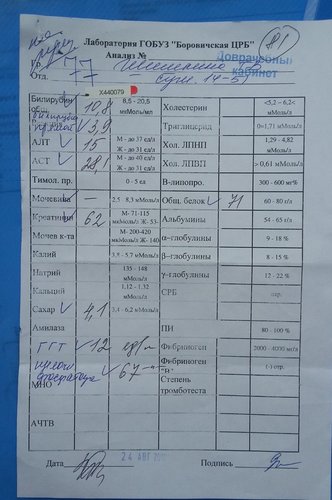 Лаборатория ГОБУЗ "Боровичская ЦРБ"
Анализ №
Доврачебный
кабинет
Отд.
X440079
Билирубин
общ.
10,8
8,5 - 20,5
мкМоль/мл
Холестерин
<5,2 – 6,2<
мМоль/л
3,9
Триглицерид
0=1,71 мМоль/л
АЛТ
15
М - до 37 ед/л
Ж - до 31 ед/л
Хол. ЛПНП
1,29 - 4,82
мМоль/л
АСТ
28,1
М - до 40 ед/л
Ж - до 31 ед/л
Хол. ЛПВП
> 0,61 мМоль/л
Тимол. пр.
0 - 5 ед
В-липопро.
300 - 600 мг%
Мочевина
2,5 - 8,3 мМоль/л
Общ. белок
71
60 - 80 г/л
Креатинин
62
М- 71-115
мкМоль/л Ж- 53-
Альбумины
54 - 65 г/л
Мочев к-та
М- 200-420
мкМоль/л Ж- 140-
α-глобулины
9 - 18 %
Калий
3,8 - 5,7 мМоль/л
β-глобулины
8 - 15 %
Натрий
135 - 148
мМоль/л
γ-глобулины
12 - 22 %
Кальций
1,12 - 1,32
мМоль/л
СРБ
отр.
Сахар
4,1
3,4 - 6,2 мМоль/л
Амилаза
ПИ
80 - 100 %
ГГТ
12
ед/л
Фибриноген
2000 - 4000 мг/л
67
Фибриноген
"В"
(-) отр.
МНО
Степень
тромботеста
АЧТВ
Дата
24 АВГ
Подпись